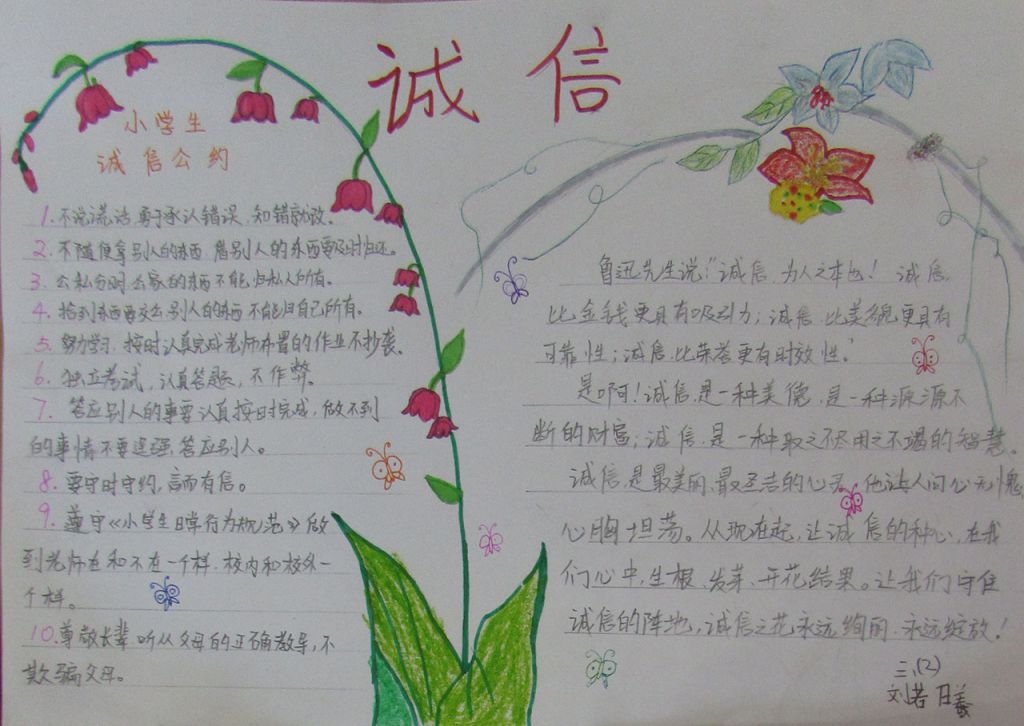 诚信
小学生
诚信公约
1.不说谎话,勇于承认错误,知错就改。
2.不随便拿别人的东西,借别人的东西要及时归还。
3.公私分明,公家的东西不能归私人所有。
4.拾到东西要交公,别人的东西不能归自己所有。
5.努力学习,按时认真完成老师布置的作业不抄袭。
6.独立考试,认真答题,不作弊。
7.答应别人的事要认真按时完成,做不到
的事情不要逞强答应别人。
8.要守时守约,言而有信。
9.遵守《小学生日常行为规范》做
到老师在和不在一个样,校内和校外一
个样。
10.尊敬长辈,听从父母的正确教导,不
欺骗父母。
鲁迅先生说:“诚信,为人之本也!诚信,
比金钱更具有吸引力;诚信,比美貌更具有
可靠性;诚信,比荣誉更有时效性。”
是啊!诚信,是一种美德,是一种源源不
断的财富;诚信,是一种取之不尽用之不竭的智慧。
诚信,是最美丽、最圣洁的心灵,他让人问心无愧,
心胸坦荡。从现在起,让诚信的种心,在我
们心中,生根、发芽、开花结果。让我们守住
诚信的阵地,诚信之花永远绚丽,永远绽放!
三、(2)
刘若曦